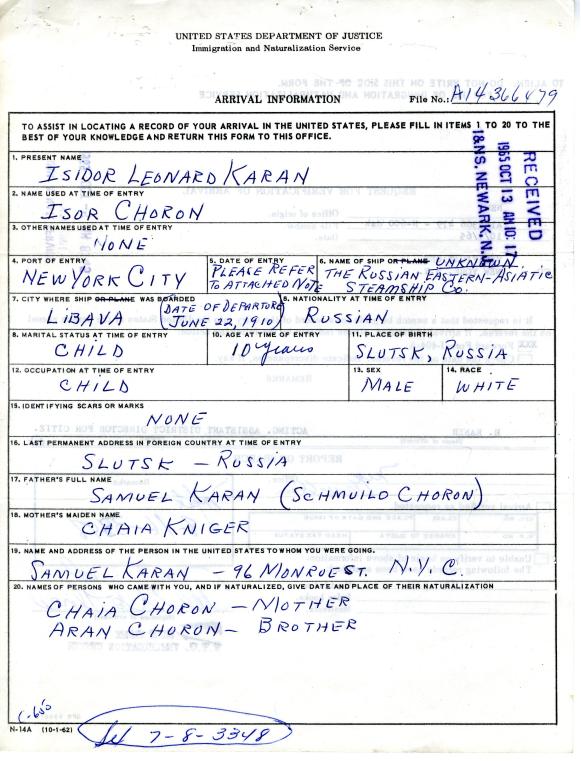 UNITED STATES DEPARTMENT OF JUSTICE
Immigration and Naturalization Service
ARRIVAL INFORMATION
File No.: A14366479
TO ASSIST IN LOCATING A RECORD OF YOUR ARRIVAL IN THE UNITED STATES, PLEASE FILL IN ITEMS 1 TO 20 TO THE
BEST OF YOUR KNOWLEDGE AND RETURN THIS FORM TO THIS OFFICE.
RECEIVED
1965 OCT 13 AM 10:17
I&NS. NEWARK. N.J.
1. PRESENT NAME
ISIDOR LEONARD KARAN
2. NAME USED AT TIME OF ENTRY
ISOR CHORON
3. OTHER NAMES USED AT TIME OF ENTRY
NONE
4. PORT OF ENTRY
NEW YORK CITY
5. DATE OF ENTRY
PLEASE REFER
TO ATTACHED NOTE
6. NAME OF SHIP OR PLANE UNKNOWN
THE RUSSIAN EASTERN-ASIATIC
STEAMSHIP CO.
7. CITY WHERE SHIP OR PLANE WAS BOARDED
LIBAVA (DATE OF DEPARTURE
JUNE 22, 1910)
8. NATIONALITY AT TIME OF ENTRY
RUSSIAN
8. MARITAL STATUS AT TIME OF ENTRY
CHILD
10. AGE AT TIME OF ENTRY
10 years
11. PLACE OF BIRTH
SLUTSK, RUSSIA
12. OCCUPATION AT TIME OF ENTRY
CHILD
13. SEX
MALE
14. RACE
WHITE
15. IDENTIFYING SCARS OR MARKS
NONE
16. LAST PERMANENT ADDRESS IN FOREIGN COUNTRY AT TIME OF ENTRY
SLUTSK - RUSSIA
17. FATHER'S FULL NAME
SAMUEL KARAN (SCHMUILO CHORON)
18. MOTHER'S MAIDEN NAME
CHAIA KNIGER
19. NAME AND ADDRESS OF THE PERSON IN THE UNITED STATES TO WHOM YOU WERE GOING.
SAMUEL KARAN - 96 MONROE ST. N.Y.C.
20. NAMES OF PERSONS WHO CAME WITH YOU, AND IF NATURALIZED, GIVE DATE AND PLACE OF THEIR NATURALIZATION
CHAIA CHORON - MOTHER
ARAN CHORON - BROTHER
C-600
N-14A (10-1-62)
7-8-3348